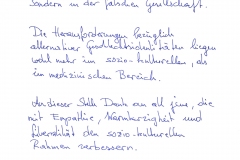 sondern in der falschen Gesellschaft.
Die Herausforderungen bezüglich
alternativer Geschlechtsidentitäten liegen
wohl mehr im sozio-kulturellen, als
im medizinischen Bereich.
An dieser Stelle Dank an all jene, die
mit Empathie, Warmherzigkeit und
Liberalität den sozio-kulturellen
Rahmen verbessern.